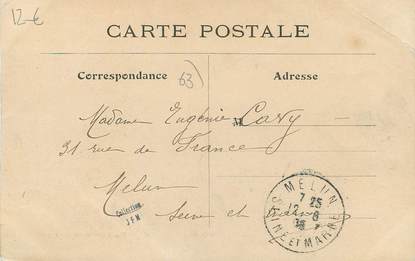 12-€
CARTE POSTALE
Correspondance
63)
Adresse
Madame Eugénie Lavy
31 rue de France
Melun
Seine et Marne
Collection
J F M
MELUN
7 25
12 - 8
SEINE ET MARNE